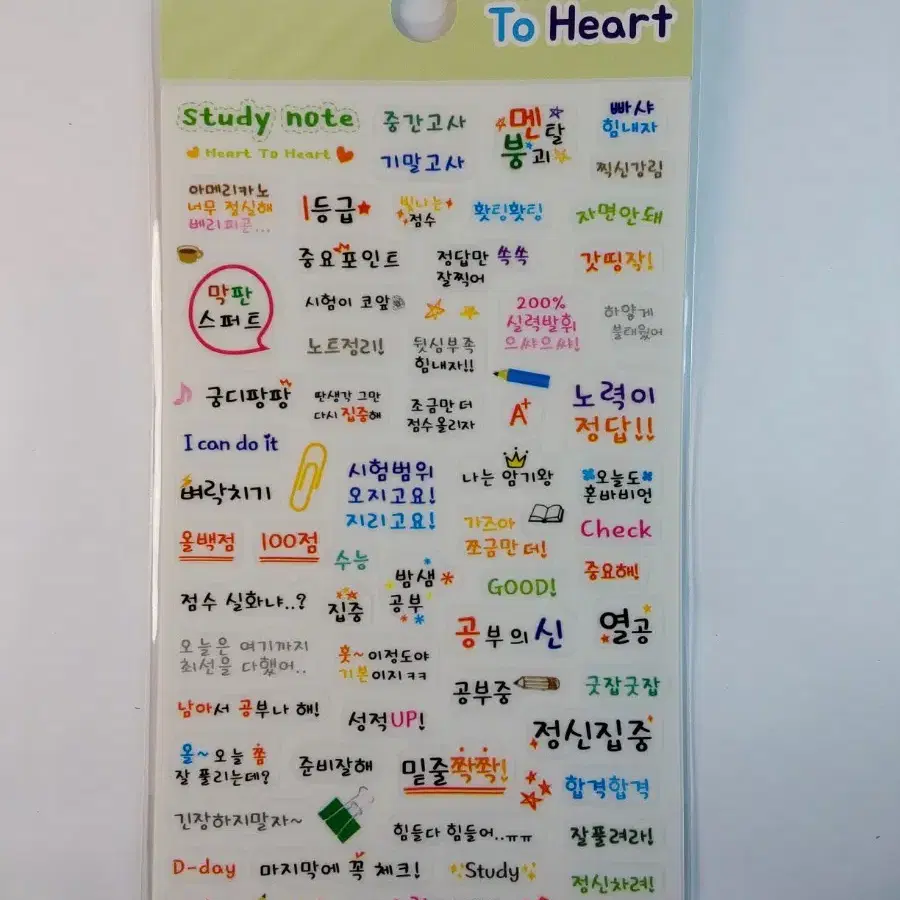 To Heart
study note
중간고사
멘탈
붕괴
빠샤
힘내자
Heart To Heart
기말고사
찍신강림
아메리카노
너무 절실해
베리피곤...
1등급
빛나는
점수
홧팅홧팅
자면안돼
중요포인트
정답만 쏙쏙
잘찍어
갓띵작!
막판
스퍼트
시험이 코앞
200%
실력발휘
으쌰으쌰!
하얗게
불태웠어
노트정리!
뒷심부족
힘내자!!
궁디팡팡
딴생각 그만
다시 집중해
조금만 더
점수올리자
A+
노력이
정답!!
I can do it
벼락치기
시험범위
오지고요!
지리고요!
나는 암기왕
오늘도
혼바비언
올백점
100점
수능
가즈아
쪼금만 더!
Check
밤샘
공부
GOOD!
중요해!
점수 실화냐..?
집중
공부의신
열공
오늘은 여기까지
최선을 다했어..
훗~이정도야
기본이지ㅋㅋ
공부중
굿잡굿잡
남아서 공부나 해!
성적UP!
정신집중
올~오늘 쫌
잘 풀리는데?
준비잘해
밑줄쫙쫙!
합격합격
긴장하지말자~
힘들다 힘들어..ㅠㅠ
잘풀려라!
D-day
마지막에 꼭 체크!
Study
정신차려!